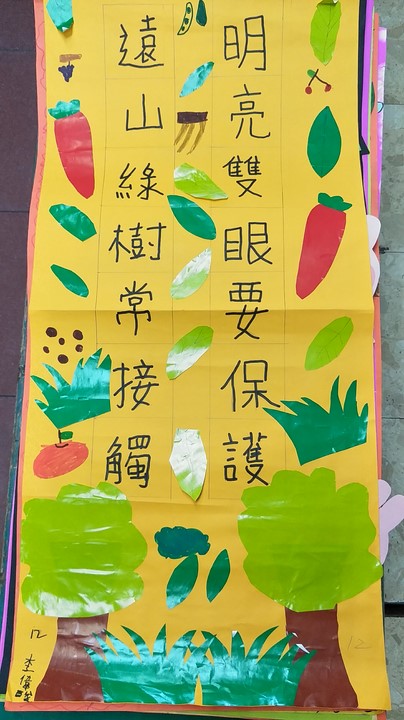 明亮雙眼要保護
遠山綠樹常接觸
12
12